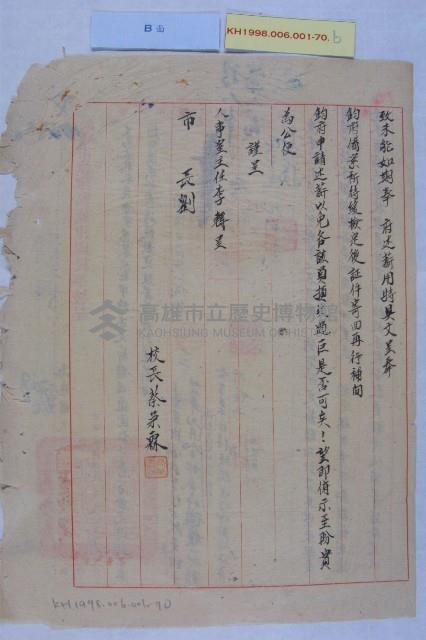 B面
KH1998.006.001-70.b
致未能如期奉 府述薪用特具文呈奉
鈞府備案祈待後檢定後証件寄回再行補開
鈞府申請述薪以免各該員損失過巨是否可矣!望即俯示至盼實
為公便
謹呈
人事室主任李轉呈
市 長劉
校長蔡景霖
高雄市立歷史博物館
KAOHSIUNG MUSEUM OF HISTORY
KH1998.006.001-70